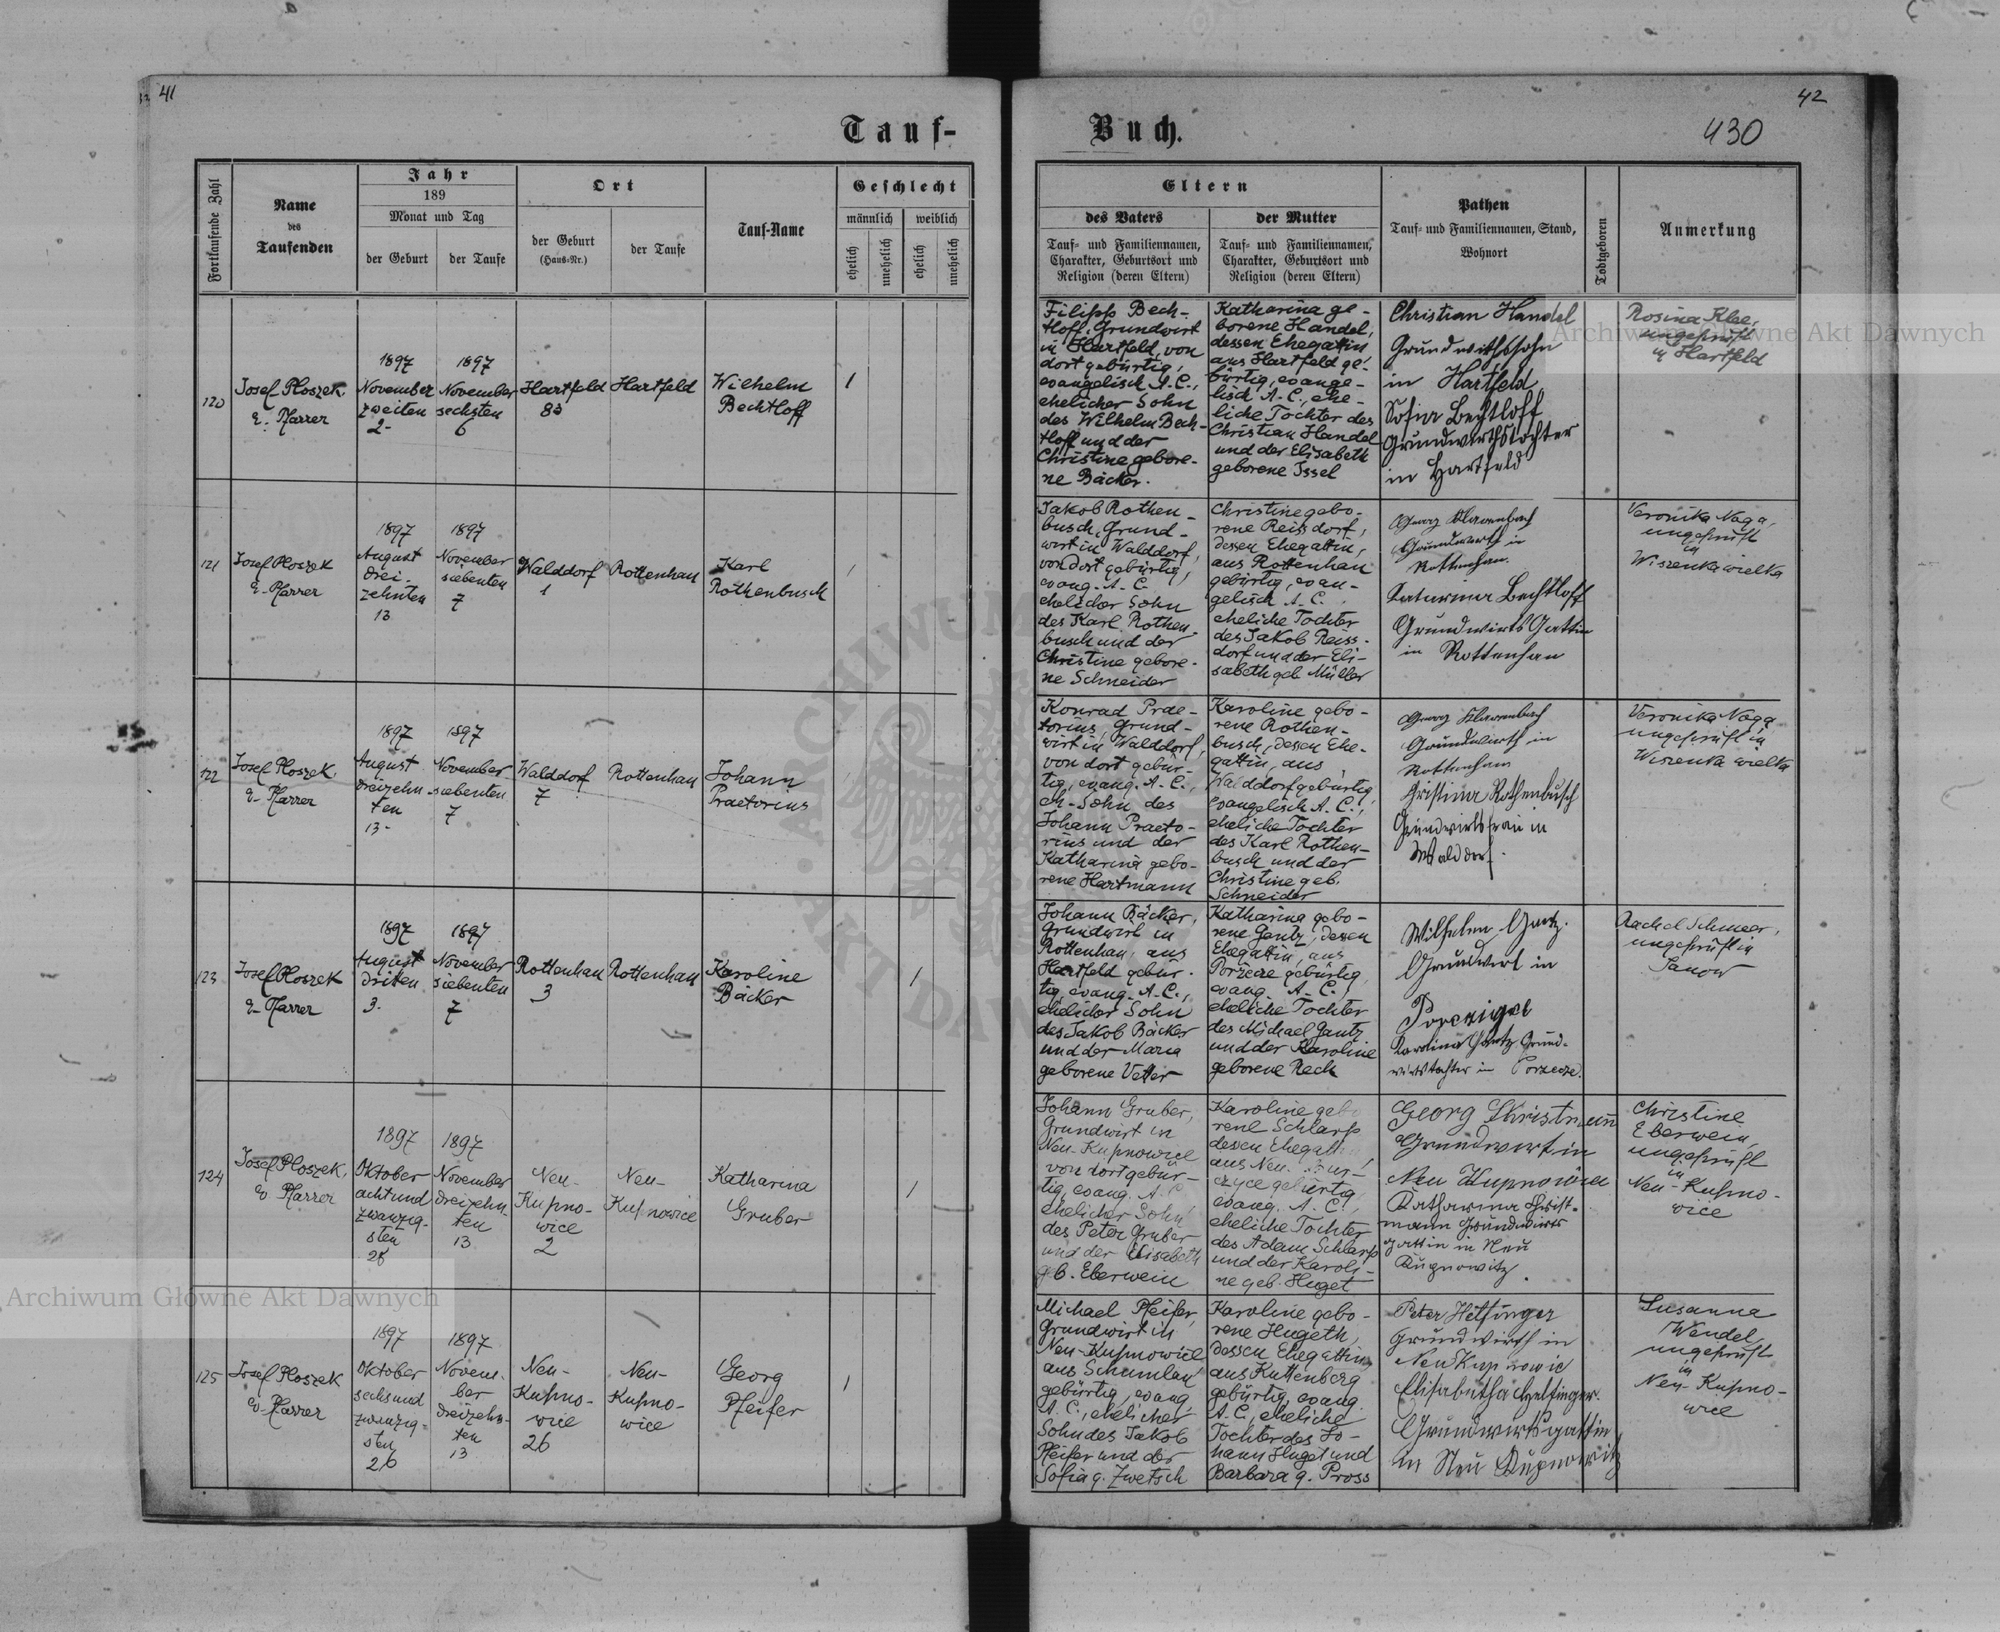 41
42
430
Tauf-
Buch.
Fortlaufende Zahl
Name
des
Taufenden
Jahr
189
Monat und Tag
der Geburt
der Taufe
Ort
der Geburt
(Haus-Nr.)
der Taufe
Tauf-Name
Geschlecht
männlich
weiblich
ehelich
unehelich
ehelich
unehelich
Eltern
des Vaters
Tauf- und Familiennamen,
Charakter, Geburtsort und
Religion (deren Eltern)
der Mutter
Tauf- und Familiennamen,
Charakter, Geburtsort und
Religion (deren Eltern)
Pathen
Tauf- und Familiennamen, Stand,
Wohnort
Todtgeboren
Anmerkung
120
Josef Ploszek
e. Pfarrer
1897
November
zweiten
2-
1897
November
sechsten
6
Hartfeld
83
Hartfeld
Wilhelm
Bechtloff
1
Filipp Bech-
tloff, Grundwirt
in Hartfeld, von
dort gebürtig,
evangelisch A.C.,
ehelicher Sohn
des Wilhelm Bech-
tloff und der
Christine gebore-
ne Bäcker.
Katharina ge-
borene Handel,
dessen Ehegattin
aus Hartfeld ge-
bürtig, evange-
lisch A.C., ehe-
liche Tochter des
Christian Handel
und der Elisabeth
geborene Issel
Christian Handel
Grundwirthssohn
in Hartfeld
Sofia Bechtloff
Grundwirthstochter
in Hartfeld
Rosina Klee,
ungeprüft
in Hartfeld
121
Josef Ploszek
e. Pfarrer
1897
August
drei-
zehnten
13
1897
November
siebenten
7
Walddorf
1
Rottenhan
Karl
Rothenbusch
1
Jakob Rothen-
busch, Grund-
wirt in Walddorf,
von dort gebürtig,
evang. A.C.
ehelicher Sohn
des Karl Rothen-
busch und der
Christine gebore-
ne Schneider
Christine gebo-
rene Reissdorf,
dessen Ehegattin,
aus Rottenhan
gebürtig, evan-
gelisch A.C.
eheliche Tochter
des Jakob Reiss-
dorf und der Eli-
sabeth geb. Müller
Georg Klarenbach
Grundwirth in
Rottenhan
Katarina Bechtloff
Grundwirts Gattin
in Rottenhan
Veronika Naga,
ungeprüft
in
Wiszenka wielka
122
Josef Ploszek
e. Pfarrer
1897
August
dreizehn-
ten
13-
1897
November
siebenten
7
Walddorf
7
Rottenhan
Johann
Praetorius
Konrad Prae-
torius, Grund-
wirt in Walddorf,
von dort gebür-
tig, evang. A.C.,
eh. Sohn des
Johann Praeto-
rius und der
Katharina gebo-
rene Hartmann
Karoline gebo-
rene Rothen-
busch, dessen Ehe-
gattin, aus
Walddorf gebürtig
evangelisch A.C.,
eheliche Tochter
des Karl Rothen-
busch und der
Christine geb.
Schneider
Georg Klarenbach
Grundwirth in
Rottenhan
Christina Rothenbusch
Grundwirtsfrau in
Walddorf.
Veronika Naga
ungeprüft in
Wiszenka wielka
123
Josef Ploszek
e. Pfarrer
1897
August
dritten
3.
1897
November
siebenten
7
Rottenhan
3
Rottenhan
Karoline
Bäcker
1
Johann Bäcker,
Grundwirt in
Rottenhan, aus
Hartfeld gebür-
tig, evang. A.C.,
ehelicher Sohn
des Jakob Bäcker
und der Maria
geborene Vetter
Katharina gebo-
rene Gantz, dessen
Ehegattin, aus
Porzecze gebürtig
evang. A.C.
eheliche Tochter
des Michael Gantz
und der Karoline
geborene Rech
Wilhelm Gantz
Grundwirt in
Karolina Gantz Grund-
wirtstochter in Porzecze.
Rachel Schmeer,
ungeprüft in
Janow
124
Josef Ploszek,
e. Pfarrer
1897
Oktober
achtund
zwanzig-
sten
28
1897
November
dreizehn-
ten
13
Neu-
Kupno-
wice
2
Neu-
Kupnowice
Katharina
Gruber
1
Johann Gruber,
Grundwirt in
Neu-Kupnowice
von dort gebür-
tig, evang. A.C.
ehelicher Sohn
des Peter Gruber
und der Elisabeth
geb. Eberwein
Karoline gebo
rene Schlarp
dessen Ehegattin
aus Neu-
czyce gebürtig
evang. A.C.,
eheliche Tochter
des Adam Schlarp
und der Karoli-
ne geb. Huget
Georg Christmann
Grundwirt in
Neu Kupnowice
Katharina Christ-
mann Grundwirts
gattin in Neu
Kupnowitz.
Christine
Eberwein,
ungeprüft
in
Neu-Kupno-
wice
125
Josef Ploszek
e. Pfarrer
1897
Oktober
sechsund
zwanzig-
sten
26
1897
Novem-
ber
dreizehn-
ten
13
Neu-
Kupno-
wice
26
Neu-
Kupno-
wice
Georg
Pfeifer
1
Michael Pfeifer,
Grundwirt in
Neu-Kupnowice
aus Schumlau
gebürtig, evang.
A.C., ehelicher
Sohn des Jakob
Pfeifer und der
Sofia g. Zwetsch
Karoline gebo-
rene Hugeth,
dessen Ehegattin
aus Kuttenberg
gebürtig, evang.
A.C., eheliche
Tochter des Jo-
hann Huget und
Barbara g. Pross
Peter Helfinger
Grundwirth in
Neu Kupnowic
Elisabetha Helfinger.
Grundwirtsgattin
in Neu Kupnowitz
Susanna
Wendel,
ungeprüft
in
Neu-Kupno-
wice
Archiwum Główne Akt Dawnych
Archiwum Główne Akt Dawnych
ARCHIWUM
AKT DAWN